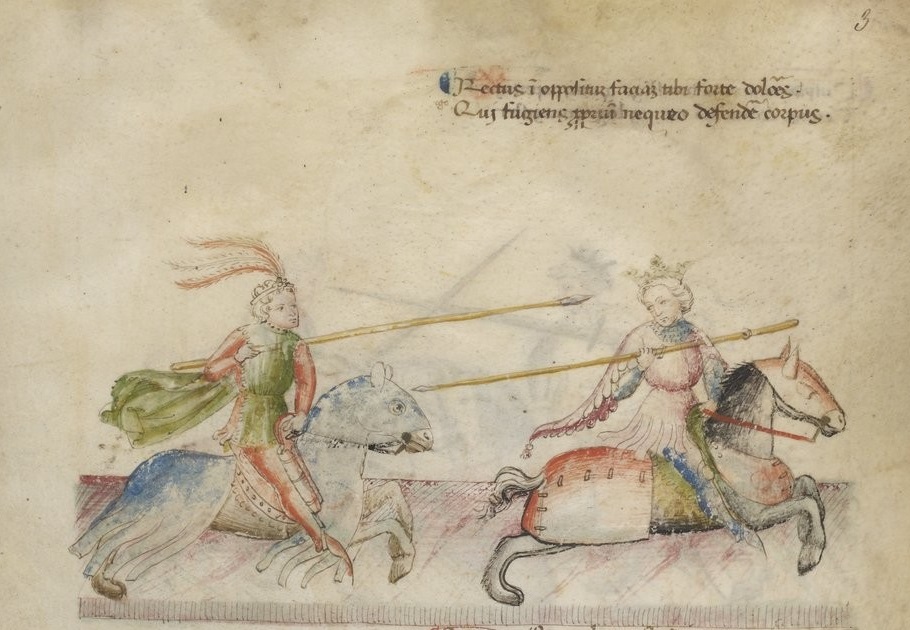 3
Rectus ī oppositū faciā tibi forte dolōēs.
Qui fulgiens ppriū nequeo defendē corpus.